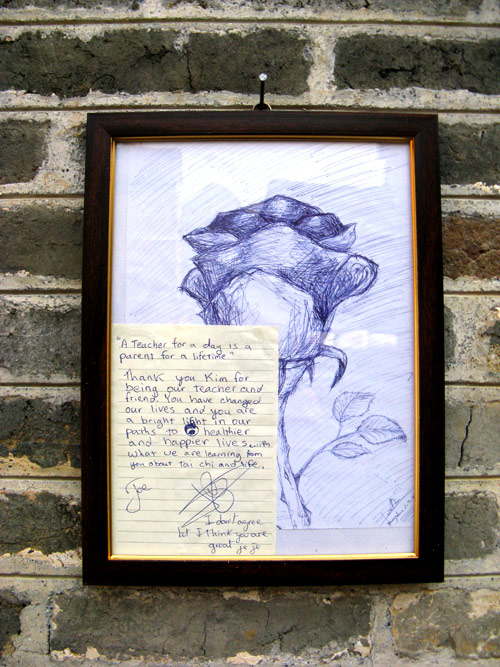 "A Teacher for a day is a
parent for a lifetime"
Thank you Kim for
being our teacher and
friend. You have changed
our lives and you are
a bright light in our
paths to healthier
and happier lives with
what we are learning from
you about Tai chi and life.
Joe
I don't agree
but I think you are
great je je